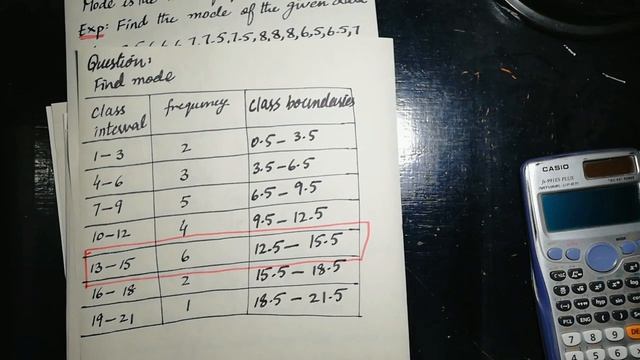 Mode is the
Exp: Find the mode of the given data
7,7.5,7.5,8,8,8,6,5,6.5,7
Question:
Find mode
Class interval frequency Class boundaries
1-3 2 0.5-3.5
4-6 3 3.5-6.5
7-9 5 6.5-9.5
10-12 4 9.5-12.5
13-15 6 12.5-15.5
16-18 2 15.5-18.5
19-21 1 18.5-21.5
CASIO
fx-991ES PLUS
7 8 9 DE
4 5 6